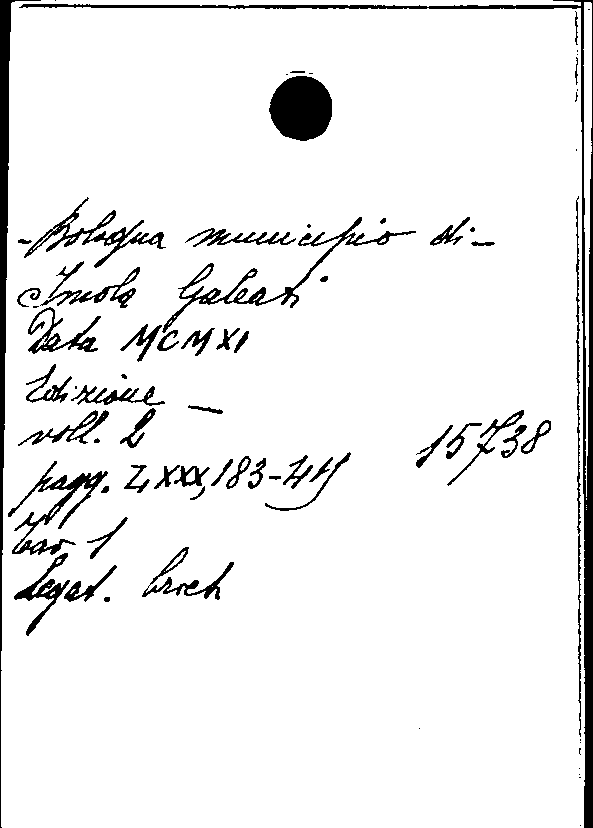 - Bologna municipio di -
Imola Galeati
Data MCMXI
Edizione —
voll. 2
15738
pagg. LXXX, 183-
Tav. 1
Legat. broch